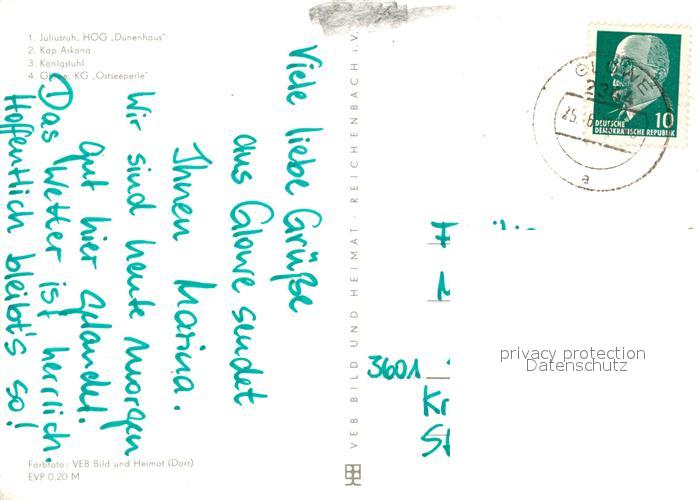 1. Juliusruh, HOG „Dünenhaus"
2. Kap Arkona
3. Königstuhl
4. Glowe, KG „Ostseeperle"
Viele liebe Grüße
aus Glowe sendet
Ihnen Marina.
Wir sind heute morgen
gut hier gelandet.
Das Wetter ist herrlich.
Hoffentlich bleibt's so!
Farbfoto: VEB Bild und Heimat (Darr)
EVP 0,20 M
VEB BILD UND HEIMAT · REICHENBACH i. V.
GLOWE
a
10
DEUTSCHE
DEMOKRATISCHE REPUBLIK
3601
Kr
privacy protection
Datenschutz